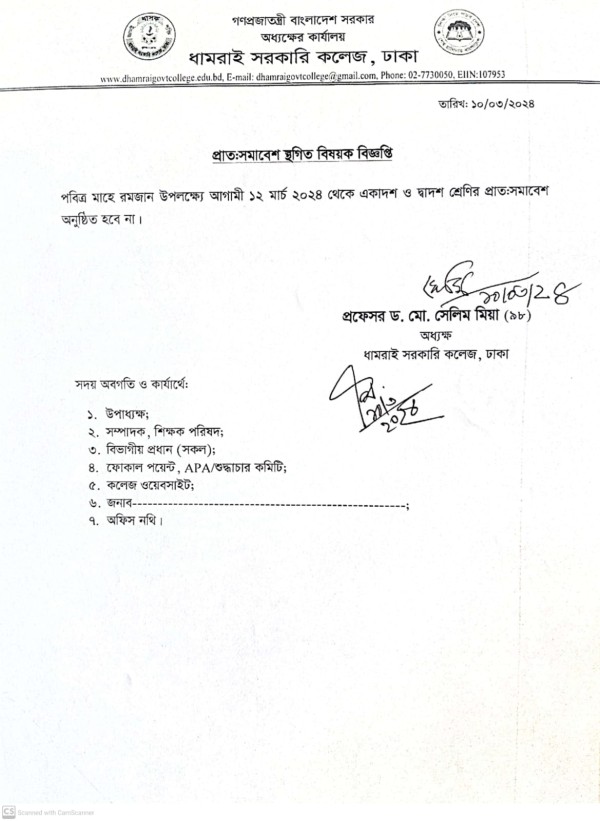 গণপ্রজাতন্ত্রী বাংলাদেশ সরকার
অধ্যক্ষের কার্যালয়
ধামরাই সরকারি কলেজ, ঢাকা
www.dhamraigovtcollege.edu.bd, E-mail: dhamraigovtcollege@gmail.com, Phone: 02-7730050, EIIN:107953
তারিখ: ১০/০৩/২০২৪
প্রাত:সমাবেশ স্থগিত বিষয়ক বিজ্ঞপ্তি
পবিত্র মাহে রমজান উপলক্ষ্যে আগামী ১২ মার্চ ২০২৪ থেকে একাদশ ও দ্বাদশ শ্রেণির প্রাত:সমাবেশ
অনুষ্ঠিত হবে না।
১০/০৩/২৪
প্রফেসর ড. মো. সেলিম মিয়া (৯৮)
অধ্যক্ষ
ধামরাই সরকারি কলেজ, ঢাকা
সদয় অবগতি ও কার্যার্থে:
১. উপাধ্যক্ষ;
২. সম্পাদক, শিক্ষক পরিষদ;
৩. বিভাগীয় প্রধান (সকল);
৪. ফোকাল পয়েন্ট, APA/শুদ্ধাচার কমিটি;
৫. কলেজ ওয়েবসাইট;
৬. জনাব-----------------------------------------------------;
৭. অফিস নথি।
CS Scanned with CamScanner